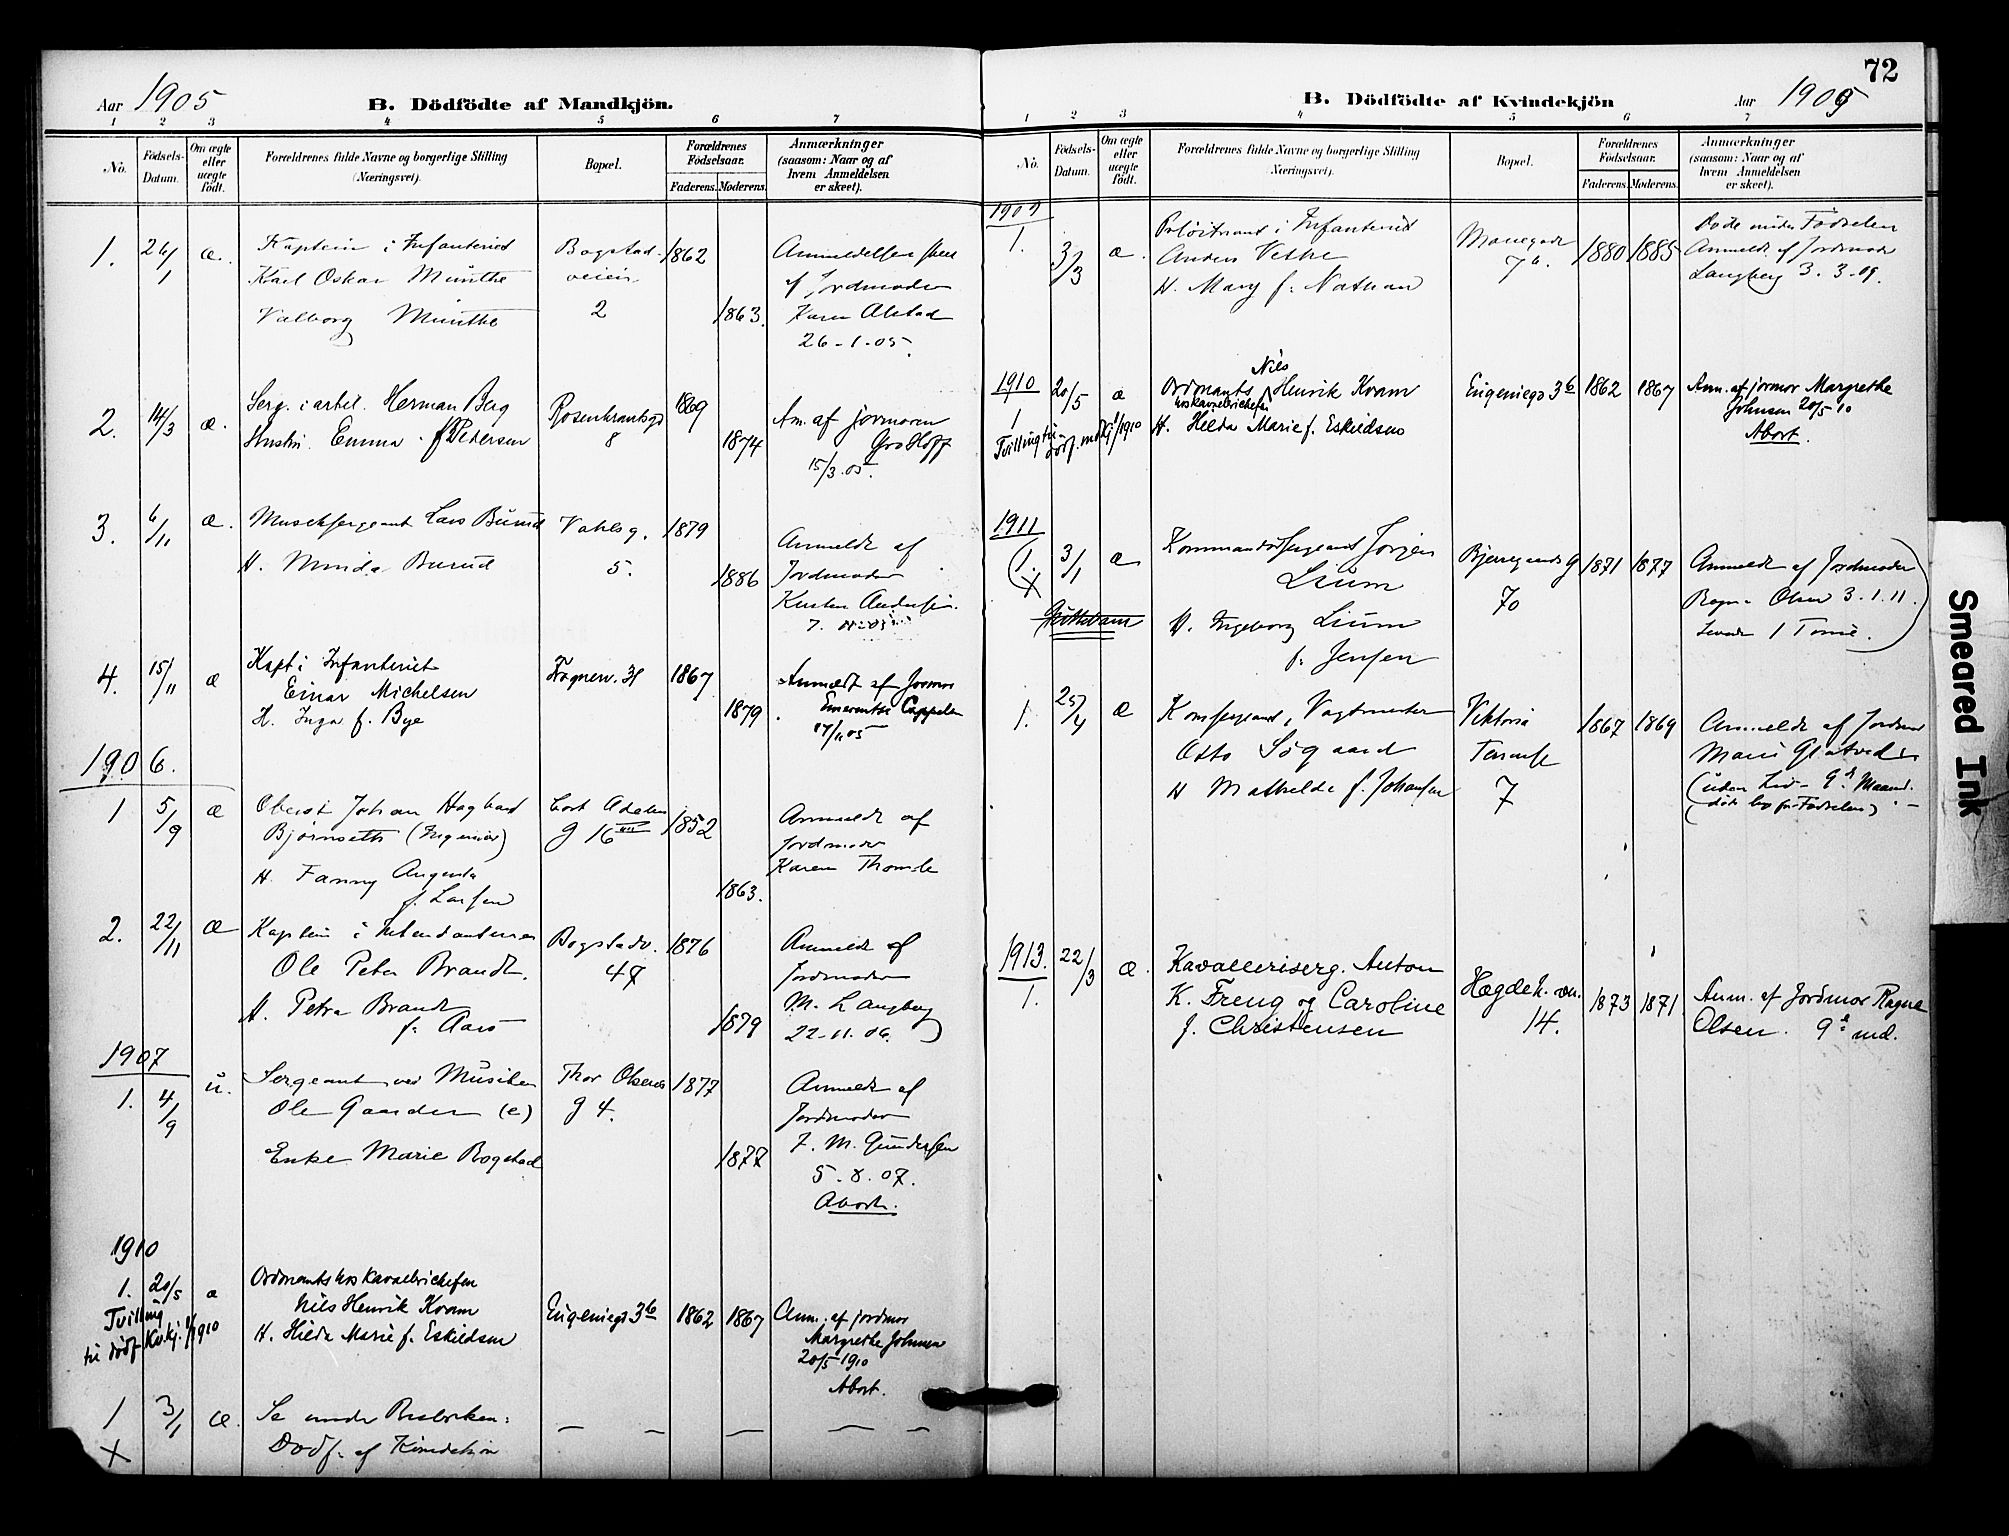 Aar 1905
B. Dödfödte af Mandkjön.
1 2 3 4 5 6 7
No.
Födsels-Datum.
Om ægte eller uægte födt.
Forældrenes fulde Navne og borgerlige Stilling (Næringsvei).
Bopæl.
Forældrenes Födselsaar.
Faderens. Moderens.
Anmærkninger (saasom: Naar og af hvem Anmeldelsen er skeet).
1. 26/1 æ. Kaptein i Infanteriet Bogstad- 1862 Anmeldelsen skeet
Karl Oskar Munthe veien af Jordmoder
Valborg Munthe 2 1863. Karen Alstad
26-1-05.
2. 14/3 æ. Serg. i artel. Herman Berg Rosenkrantzgd 1869 Am. af jormoren
Hustri. Emma f Pedersen 8 1874 Gro Hoff
15/3.05.
3. 6/11 æ. Musiksergeant Lars Burud Vahls g. 1879 Anmeldt af
H. Minda Burud 5. 1886 Jordmoder
Kirsten Andersen.
4. 15/11 æ Kapt i Infanteriet Frognerv. 31 1867 Anmeldt af Jormor
Einar Michelsen Emerentse Cappelen
H. Inga f. Bye 1879. 17/11 05
1906.
1 5/9 æ Oberst Johan Hagbart Cort Adelers 1852 Anmeldt af
Bjørnseth (Ingeniør) g 16 Jordmoder
H. Fanny Augusta 1863. Karen Thomle
f. Larsen
2. 22/11 æ Kaptein i Intendanturen Bogstadv. 1876 Anmeldt af
Ole Peter Brandt. 47 Jordmoder
H. Petra Brandt 1879 M. Langberg
f. Aars 22-11.06.
1907
1. 4/9 u. Sergeant ved Musiken Thor Olsens 1877 Anmeldt af
Ole Gaarder (e) g 4. Jordmoder
Enke Marie Bogstad 1877 F. M. Gundersen
5.8.07.
Abort.
1910
1. 20/5 æ Ordonants hos Kavalerichefen
Nils Henrik Kvam Eugeniegd 3b 1862 1867 Anm. af jordmor
Tvilling
til dødf. Kv.kj. 1/1910 H. Hilda Marie f. Eskildsen Margrethe Johnsen
20/5 1910
Abort.
1 3/1 æ. Se under Rubriken: — — — — —
X Dødf. af Kvindekjøn
72
B. Dödfödte af Kvindekjön
Aar 1905
1 2 3 4 5 6 7
No.
Födsels-Datum.
Om ægte eller uægte födt.
Forældrenes fulde Navne og borgerlige Stilling (Næringsvei).
Bopæl.
Forældrenes Födselsaar.
Faderens. Moderens.
Anmærkninger (saasom: Naar og af hvem Anmeldelsen er skeet).
1909
1. 3/3 æ. Prløitnant i Infanteriet 1880 1885 Døde under Fødselen
Anders Vethe 7b. Anmeldt af Jordmoder
H. Mary f. Nathan Langberg 3.3.09.
1910 20/5 æ Ordonants Nils Henrik Kvam Eugeniegd 3b 1862 1867 Anm. af jormor Margrethe
hos Kavalerichefen Johnsen 20/5 10
1 Tvilling til dødf. mdkj 1/1910 H. Hilda Marie f. Eskildsen Abort.
1911
(1. 3/1 æ Kommandersergeant Jørgen Bjerregaards g 1871 1877 Anmeldt af Jordmoder
X Lium 70 Ragna Olsen 3.1.11.
H. Ingeborg Lium Levede 1 Time.)
f. Jensen
1. 25/4 æ Komsergeant, Vagtmester Viktoria 1867 1869 Anmeldt af Jordmor
Otto Søgaard Terrasse Marie Glatved
H Mathilde f. Johansen 7 (uden Liv - 9d Maaned.
død før Fødselen)
1913. 22/3 æ. Kavalleriserg. Anton Hægdeh. vn. 1873 1871 Anm. af Jordmor Ragna
1. K. Freng og Caroline 14. Olsen. 9d md.
f. Christensen
Smeared Ink